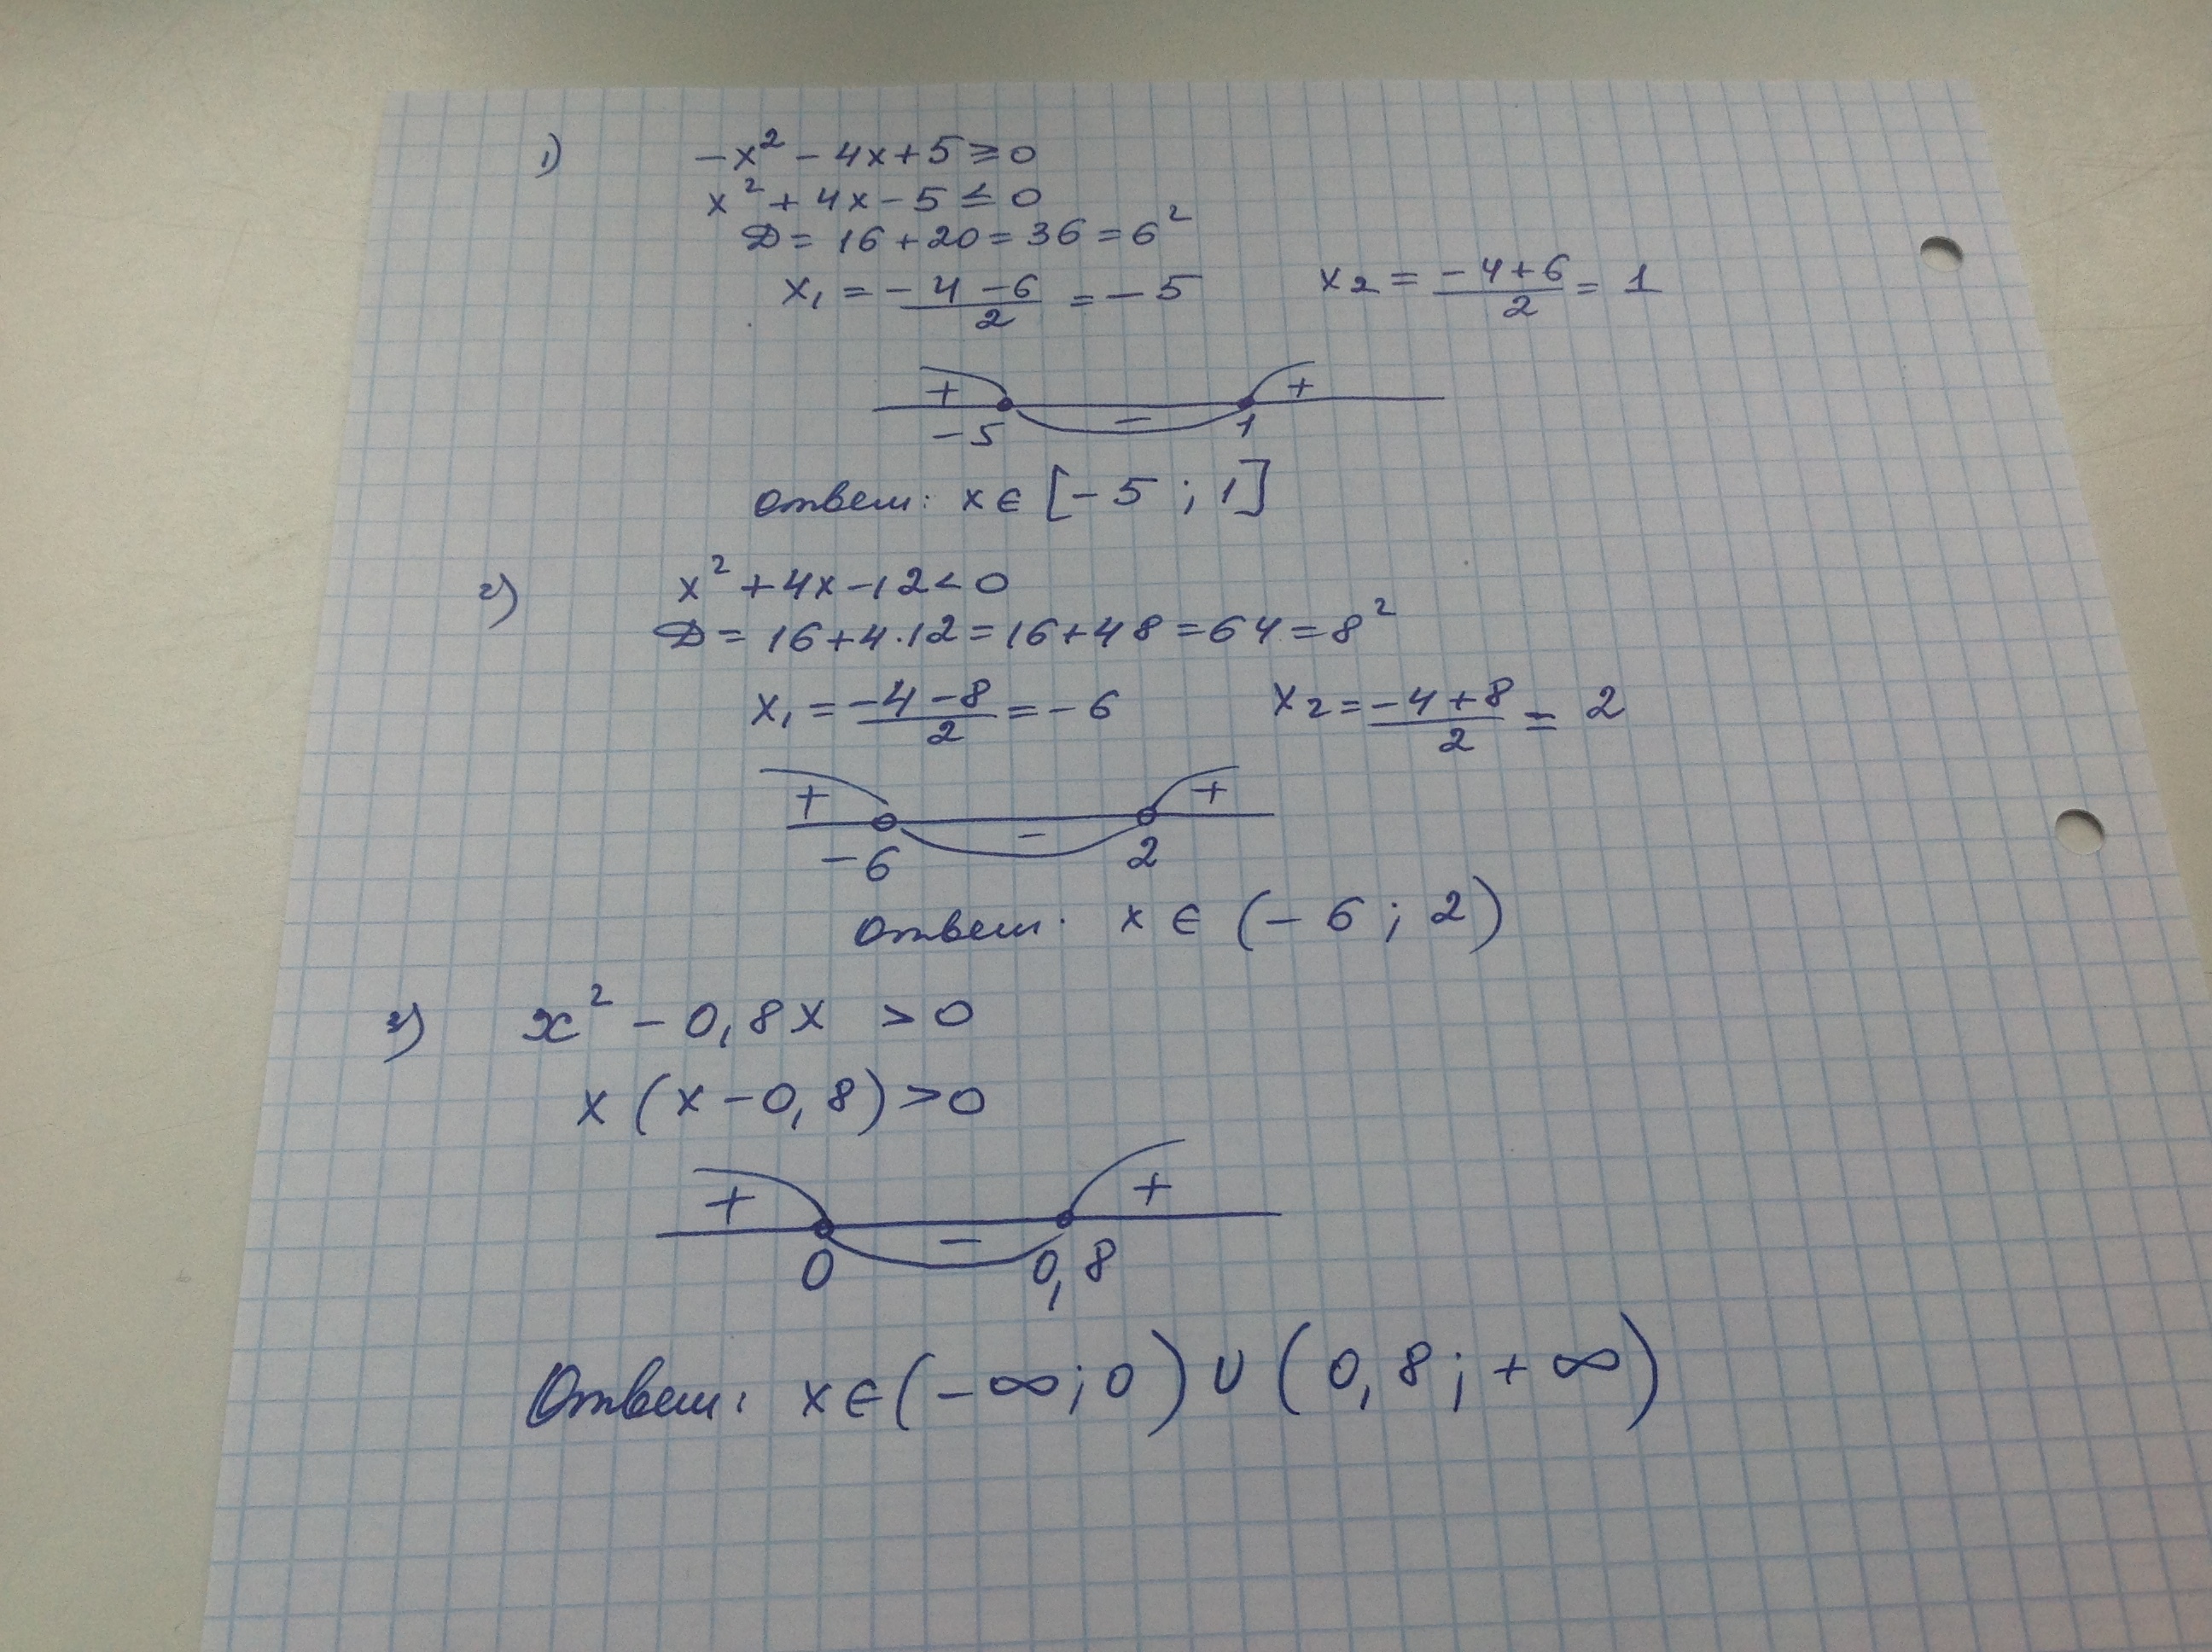 1) -x² - 4x + 5 ≥ 0
x² + 4x - 5 ≤ 0
D = 16 + 20 = 36 = 6²
x₁ = (-4 - 6)/2 = -5 x₂ = (-4 + 6)/2 = 1
+ - +
-5 1
ответ: x ∈ [-5 ; 1]
2) x² + 4x - 12 < 0
D = 16 + 4·12 = 16 + 48 = 64 = 8²
x₁ = (-4 - 8)/2 = -6 x₂ = (-4 + 8)/2 = 2
+ - +
-6 2
ответ: x ∈ (-6 ; 2)
3) x² - 0,8x > 0
x(x - 0,8) > 0
+ - +
0 0,8
Ответ: x ∈ (-∞; 0) ∪ (0,8; +∞)